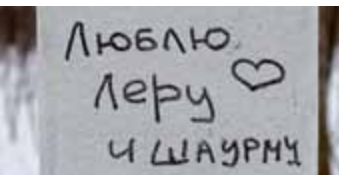 Люблю
Леру ♡
и шаурму